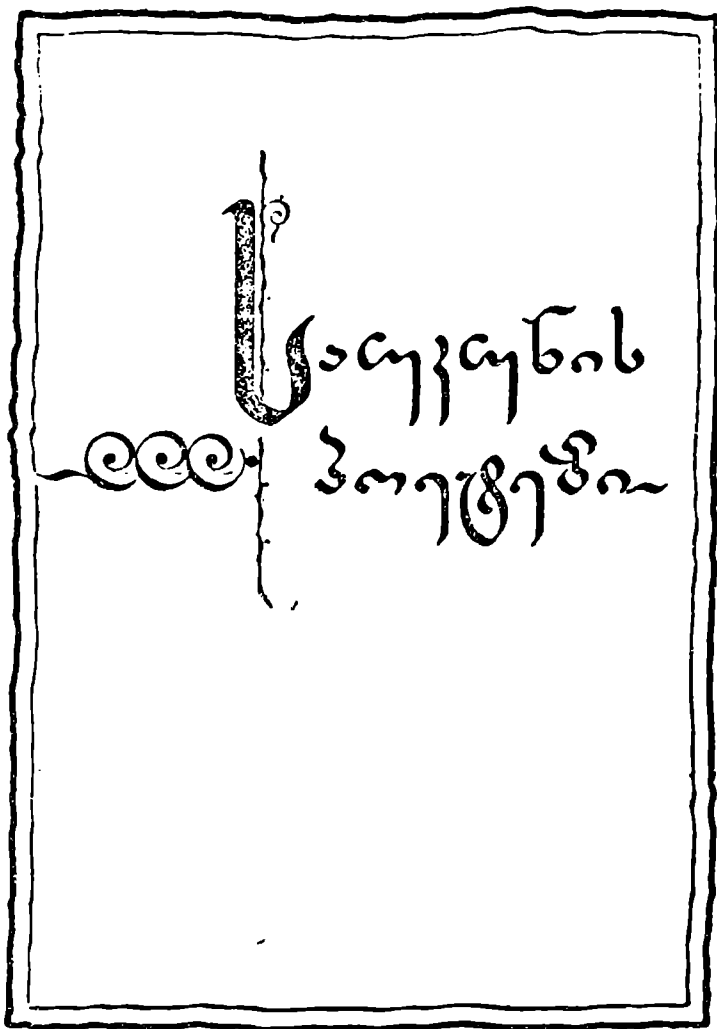 საუკუნის
პოეტები